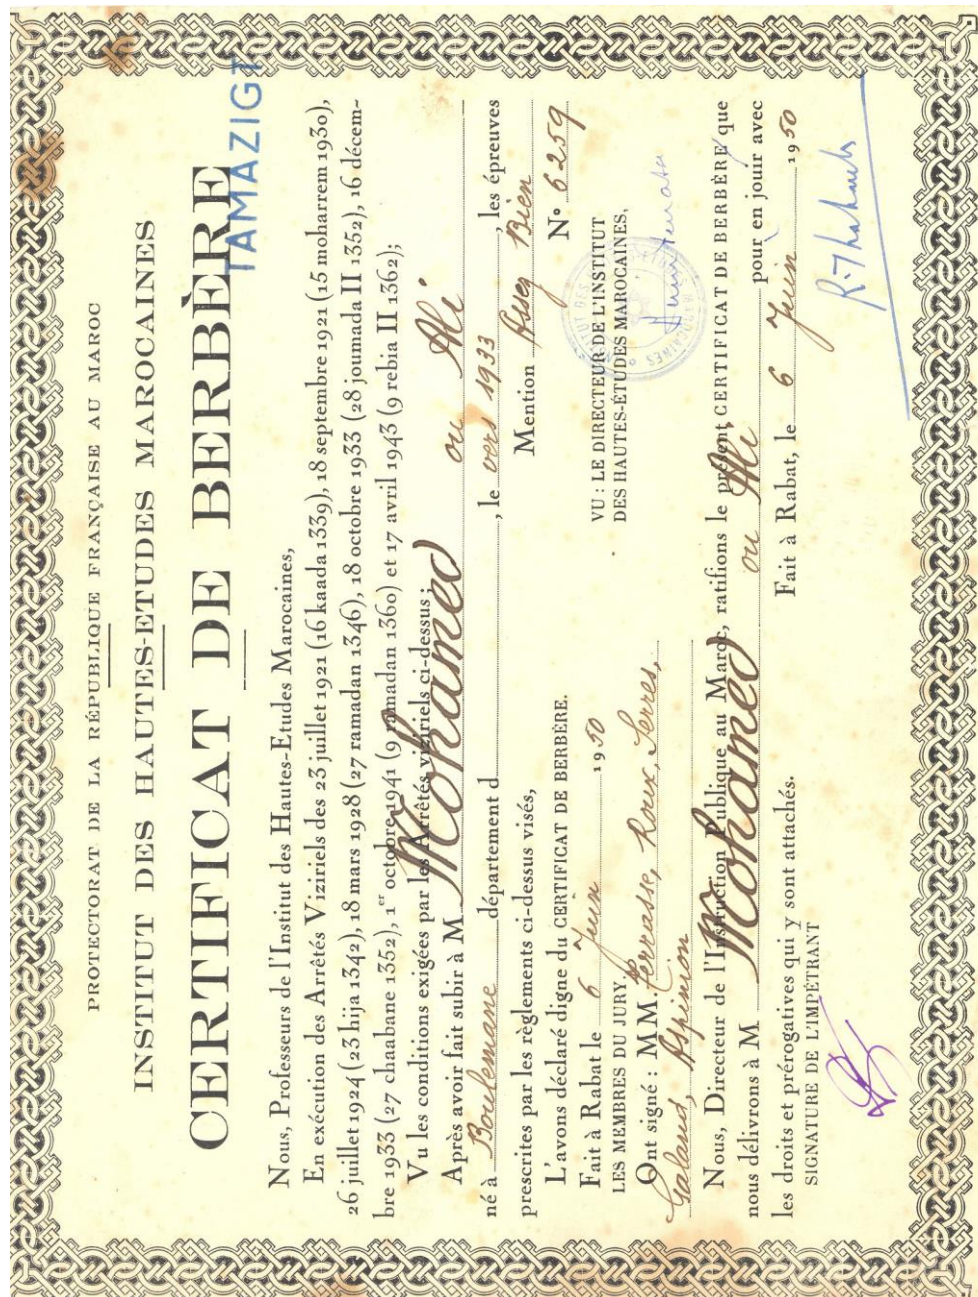 PROTECTORAT DE LA RÉPUBLIQUE FRANÇAISE AU MAROC
INSTITUT DES HAUTES-ETUDES MAROCAINES
CERTIFICAT DE BERBÈRE
TAMAZIGT
Nous, Professeurs de l'Institut des Hautes-Etudes Marocaines,
En exécution des Arrêtés Viziriels des 23 juillet 1921 (16 kaada 1339), 18 septembre 1921 (15 moharrem 1930),
26 juillet 1924 (23 hija 1342), 18 mars 1928 (27 ramadan 1346), 18 octobre 1933 (28 joumada II 1352), 16 décem-
bre 1933 (27 chaabane 1352), 1er octobre 1941 (9 ramadan 1360) et 17 avril 1943 (9 rebia II 1362);
Vu les conditions exigées par les Arrêtés viziriels ci-dessus;
Après avoir fait subir à M Mohamed ou Ali
né à Boulemane département d , le vers 1933 , les épreuves
prescrites par les règlements ci-dessus visés, Mention Assez Bien
L'avons déclaré digne du CERTIFICAT DE BERBÈRE. N° 6259
Fait à Rabat le 6 Juin 1950
VU : LE DIRECTEUR DE L'INSTITUT
DES HAUTES-ÉTUDES MAROCAINES,
LES MEMBRES DU JURY,
Ont signé : MM. Terrasse, Roux, Serres,
Galand, Aspinion
Nous, Directeur de l'Instruction Publique au Maroc, ratifions le présent CERTIFICAT DE BERBÈRE que
nous délivrons à M Mohamed ou Ali pour en jouir avec
les droits et prérogatives qui y sont attachés.
Fait à Rabat, le 6 Juin 1950
SIGNATURE DE L'IMPÉTRANT